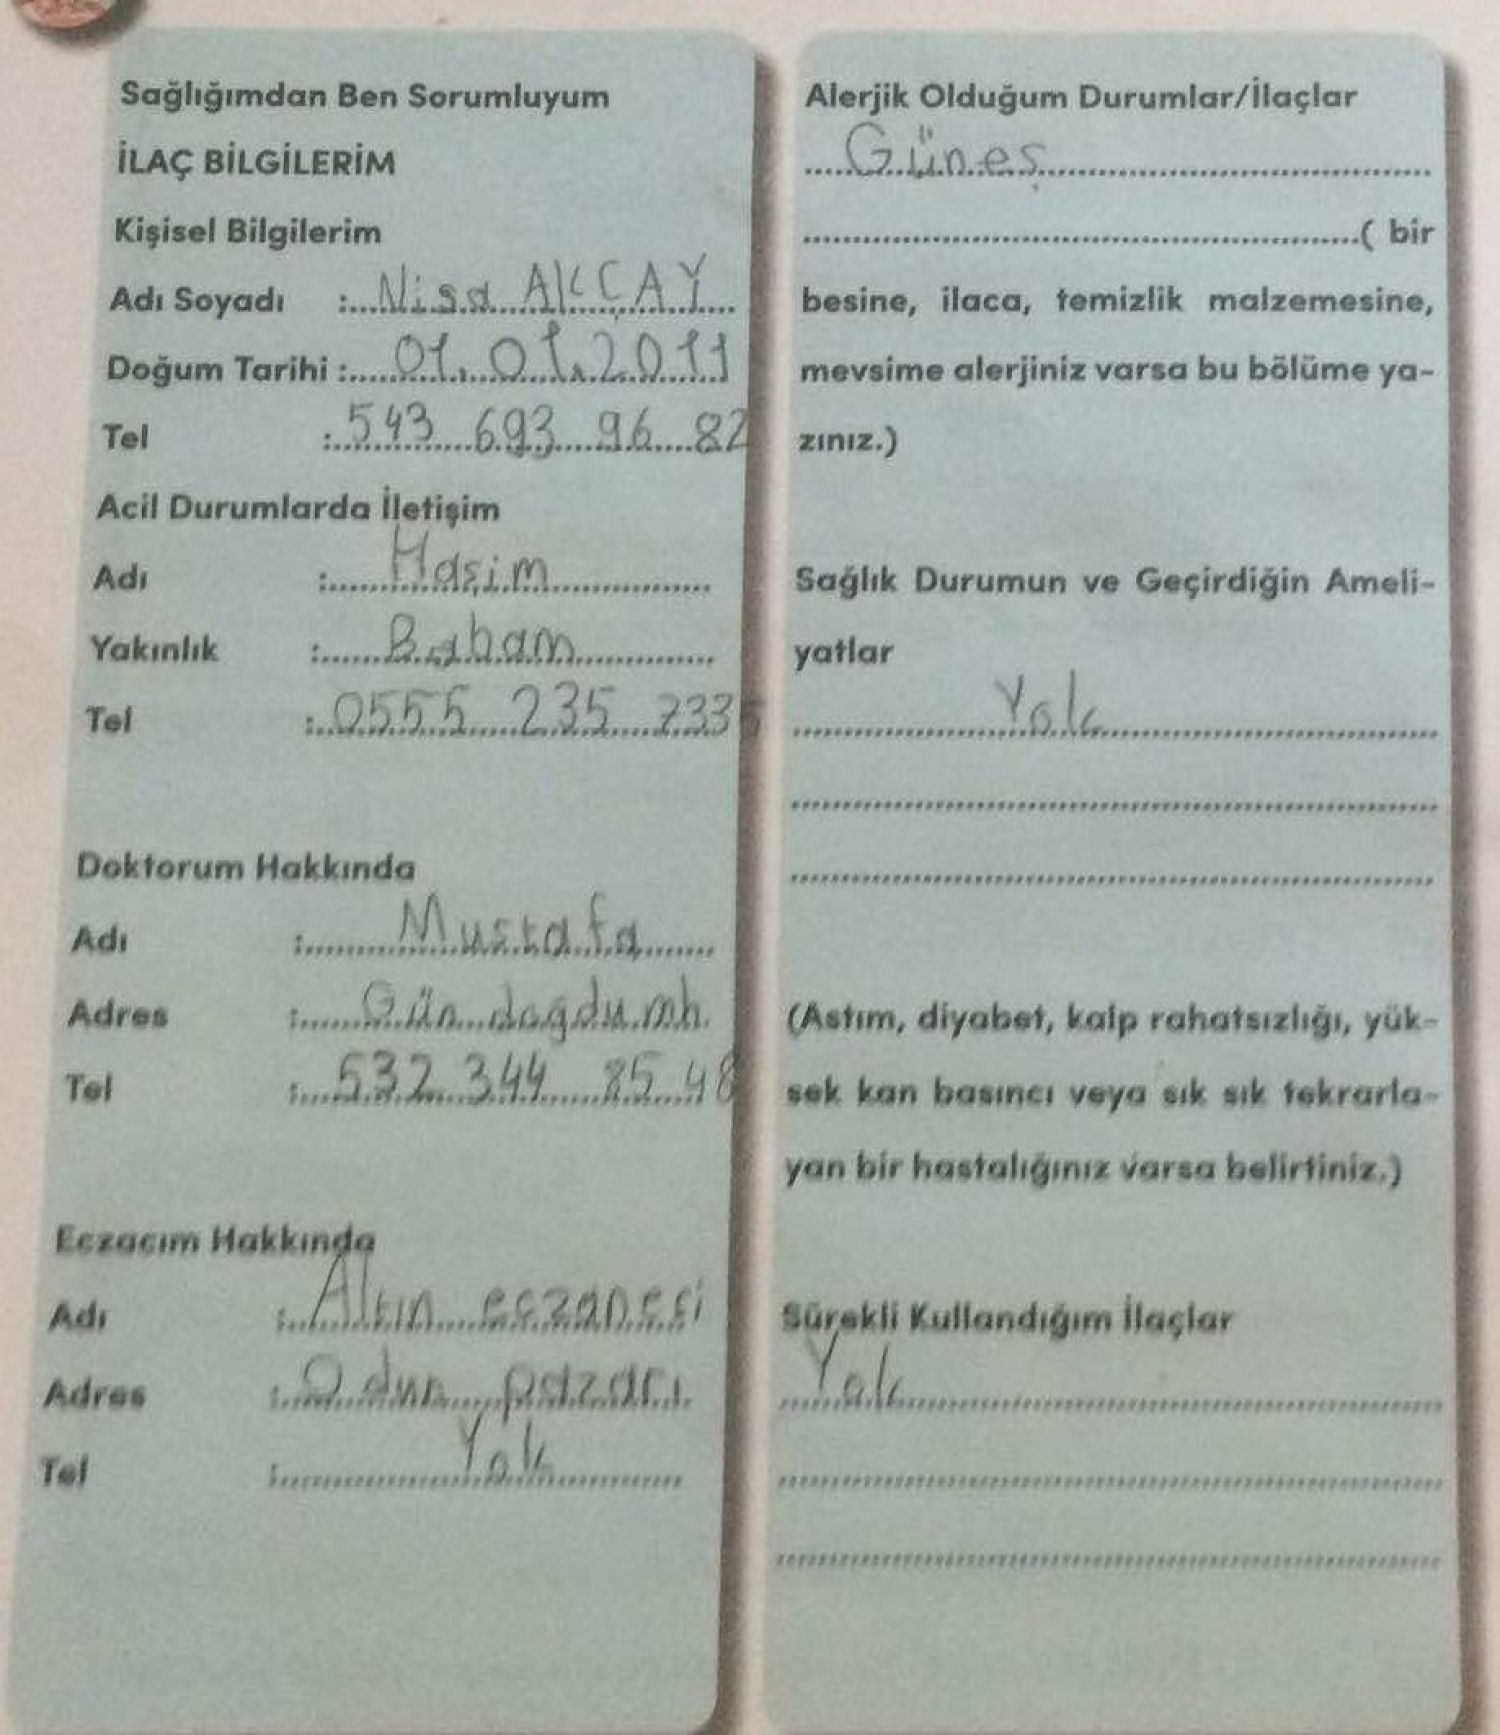 Sağlığımdan Ben Sorumluyum
İLAÇ BİLGİLERİM
Kişisel Bilgilerim
Adı Soyadı : Nisa AKÇAY
Doğum Tarihi : 01.01.2011
Tel : 543 693 96 82
Acil Durumlarda İletişim
Adı : Haşim
Yakınlık : Babam
Tel : 0555 235 2335
Doktorum Hakkında
Adı : Mustafa
Adres : Gün doğdu mh.
Tel : 532 344 85 48
Eczacım Hakkında
Adı : Altın eczanesi
Adres : Odun pazarı
Tel : Yok
Alerjik Olduğum Durumlar/İlaçlar
Güneş
( bir
besine, ilaca, temizlik malzemesine,
mevsime alerjiniz varsa bu bölüme ya-
zınız.)
Sağlık Durumun ve Geçirdiğin Ameli-
yatlar
Yok
(Astım, diyabet, kalp rahatsızlığı, yük-
sek kan basıncı veya sık sık tekrarla-
yan bir hastalığınız varsa belirtiniz.)
Sürekli Kullandığım İlaçlar
Yok